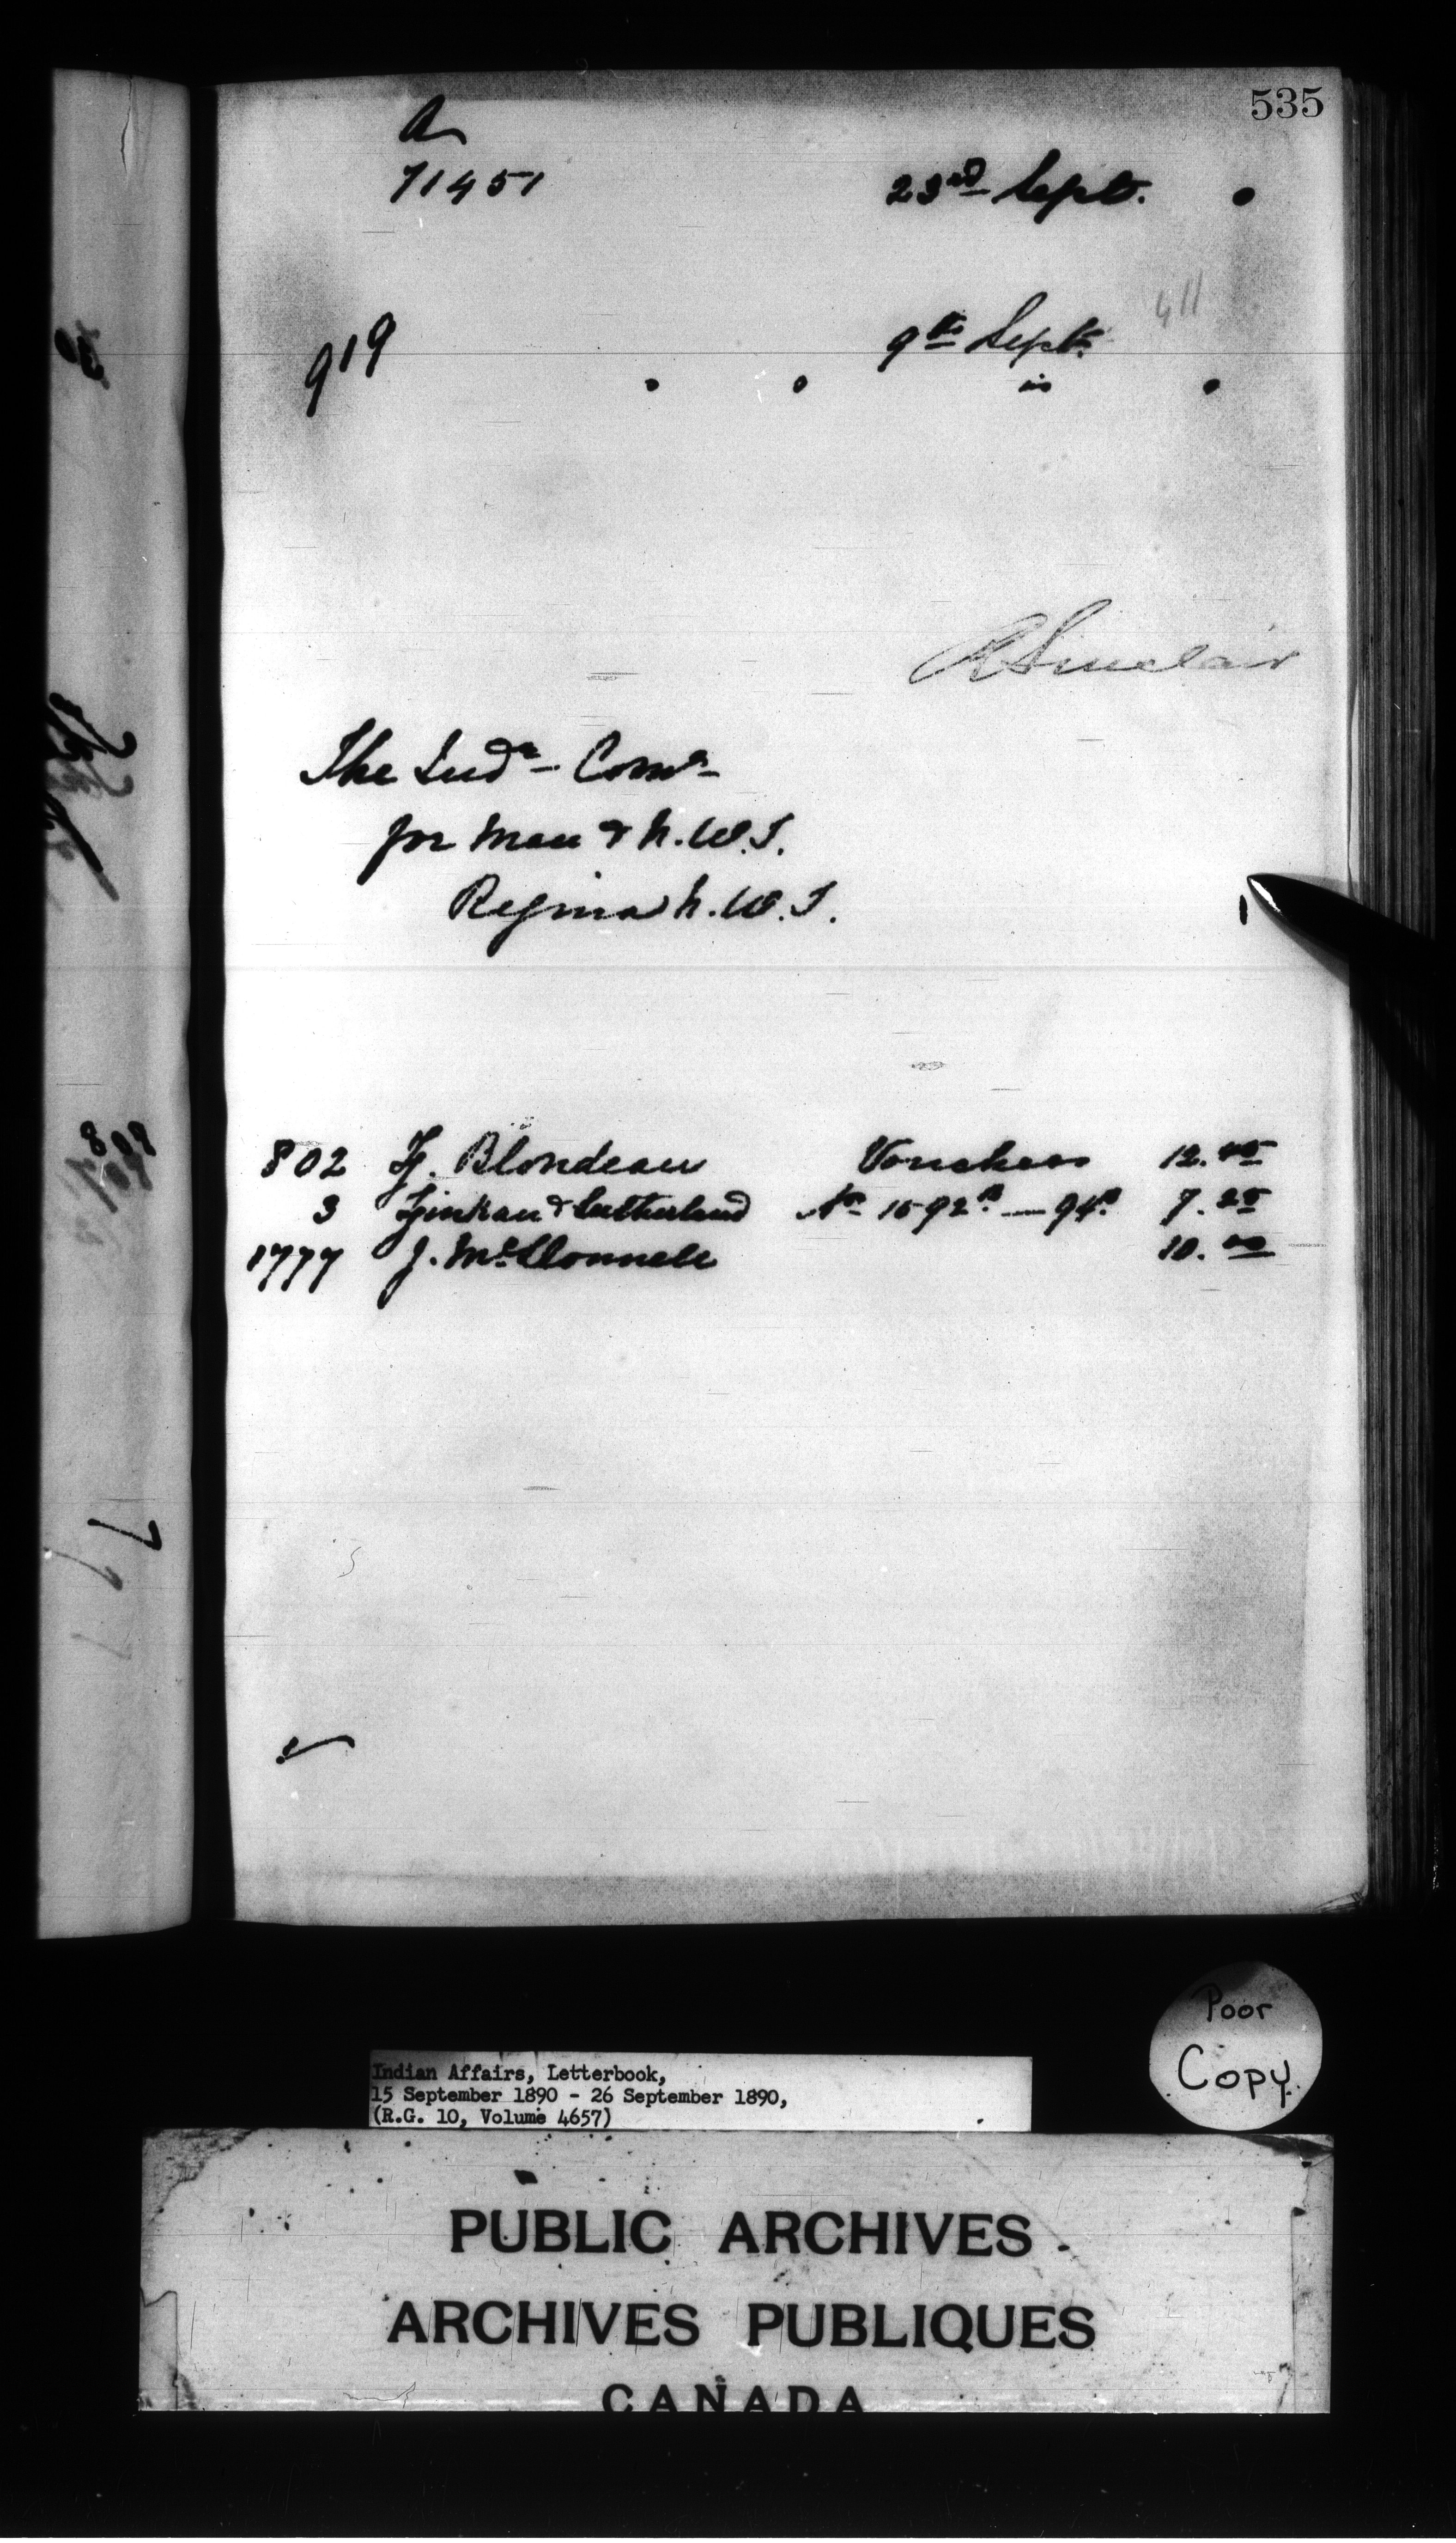 535
A
71451 23rd Sept.
411
919 9th Sept.
is
R Sinclair
The Indn Comr
for Man & N.W.T.
Regina N.W.T.
802 F. Blondeau Vouchers 12.45
3 & Sutherland No 1592 B — 94 B 7.25
1777 J. McDonnell 10.00
Poor
Copy
Indian Affairs, Letterbook,
15 September 1890 - 26 September 1890,
(R.G. 10, Volume 4657)
PUBLIC ARCHIVES
ARCHIVES PUBLIQUES
CANADA